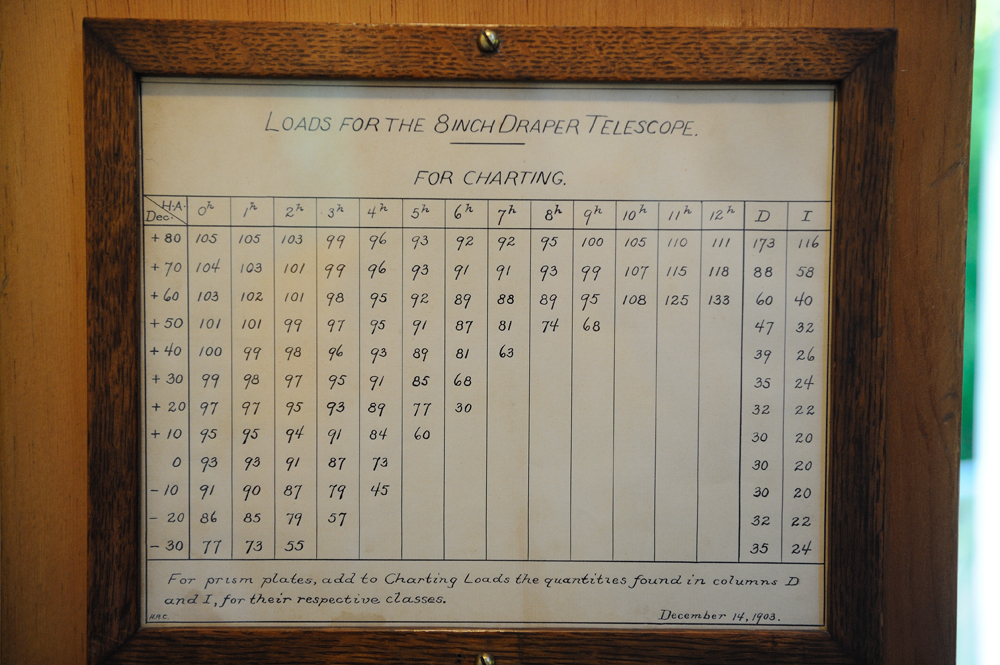 LOADS FOR THE 8 INCH DRAPER TELESCOPE.
FOR CHARTING.
H.A. Dec. 0h 1h 2h 3h 4h 5h 6h 7h 8h 9h 10h 11h 12h D I
+80 105 105 103 99 96 93 92 92 95 100 105 110 111 173 116
+70 104 103 101 99 96 93 91 91 93 99 107 115 118 88 58
+60 103 102 101 98 95 92 89 88 89 95 108 125 133 60 40
+50 101 101 99 97 95 91 87 81 74 68 47 32
+40 100 99 98 96 93 89 81 63 39 26
+30 99 98 97 95 91 85 68 35 24
+20 97 97 95 93 89 77 30 32 22
+10 95 95 94 91 84 60 30 20
0 93 93 91 87 73 30 20
-10 91 90 87 79 45 30 20
-20 86 85 79 57 32 22
-30 77 73 55 35 24
For prism plates, add to Charting Loads the quantities found in columns D
and I, for their respective classes.
December 14, 1903.